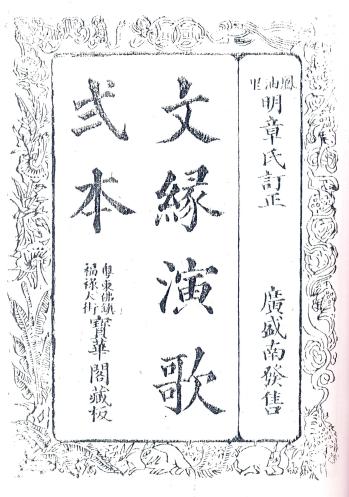 油里
明章氏訂正
廣盛南發售
文緣演歌
弍本
粵東佛鎮
福祿大街
寶華閣藏板